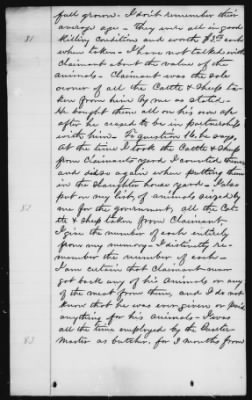 full grown - I don't remember their
average age - They were all in good
81 Killing Condition and worth $3.00 each
when taken - I have not talked with
Claimant about the value of the
animals - Claimant was the sole
owner of all the Cattle & Sheep ta-
ken from him by me as stated.
He bought them all on his own a/c
after he ceased to be in partnership
with him. To question 16 he says,
At the time I took the Cattle & Sheep
from Claimants yard I counted them
and did so again when putting them
in the slaughter house yard - I also
put on my list of animals seized by
82 me for the government, all the Cat-
tle & Sheep taken from Claimant.
I give the number of each entirely
from my memory - I distinctly re-
member the number of each -
I am certain that Claimant never
got back any of his animals or any
of the meat from them, and I do not
know that he was ever given or paid
anything for his animals - I was
all the time employed by the Quarter
83 Master as butcher, for 2 months from